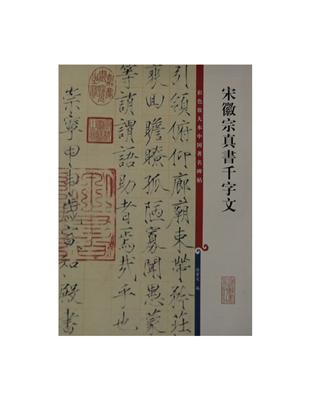 宋徽宗真書千字文
彩色放大本中國著名碑帖
引領俯仰廊廟束帶矜莊
回瞻眺孤陋寡聞愚蒙
等誚謂語助者焉哉乎也
崇寧甲申歲宣和殿書